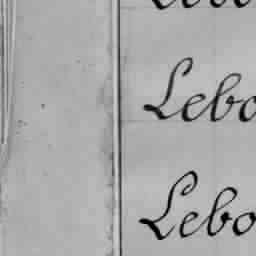 Lebo
Lebo